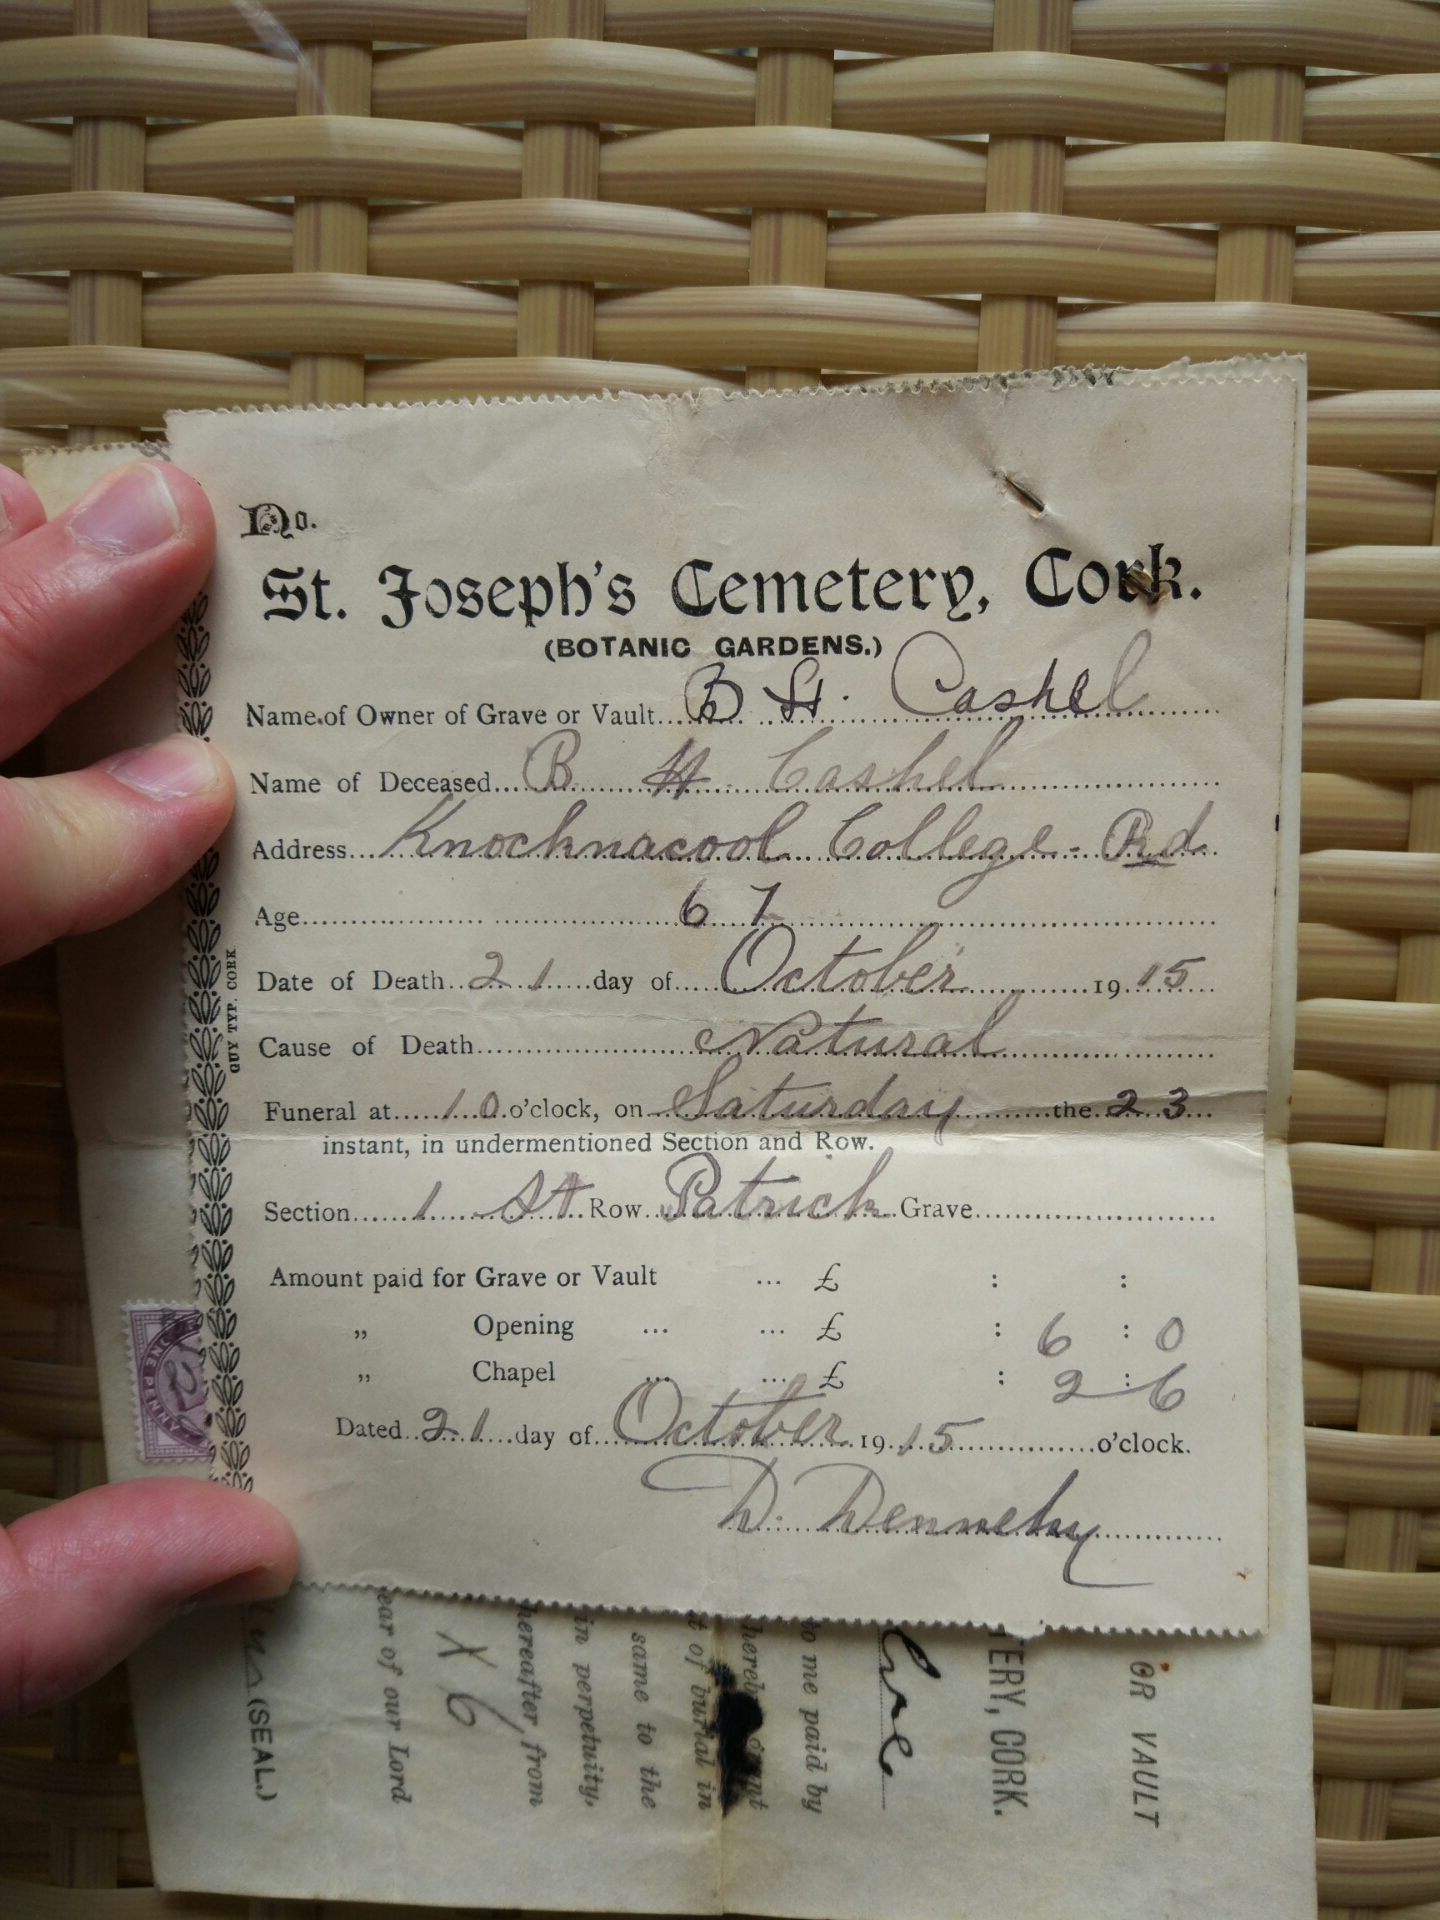 No.
St. Joseph's Cemetery, Cork.
(BOTANIC GARDENS.)
Name of Owner of Grave or Vault B H. Cashel
Name of Deceased B H Cashel
Address Knocknacool College-Rd
Age 67
Date of Death 21 day of October 1915
Cause of Death Natural
Funeral at 10 o'clock, on Saturday the 23
instant, in undermentioned Section and Row.
Section 1 St Row Patrick Grave
Amount paid for Grave or Vault ... £ : :
„ Opening ... ... £ : 6 : 0
„ Chapel ... ... £ : 2 : 6
Dated 21 day of October 1915 o'clock.
D. Dennehy
GUY TYP. CORK
ONE PENNY
OR VAULT
TERY, CORK.
to me paid by
t of burial in
same to the
in perpetuity,
hereafter, from
ear of our Lord
(SEAL.)